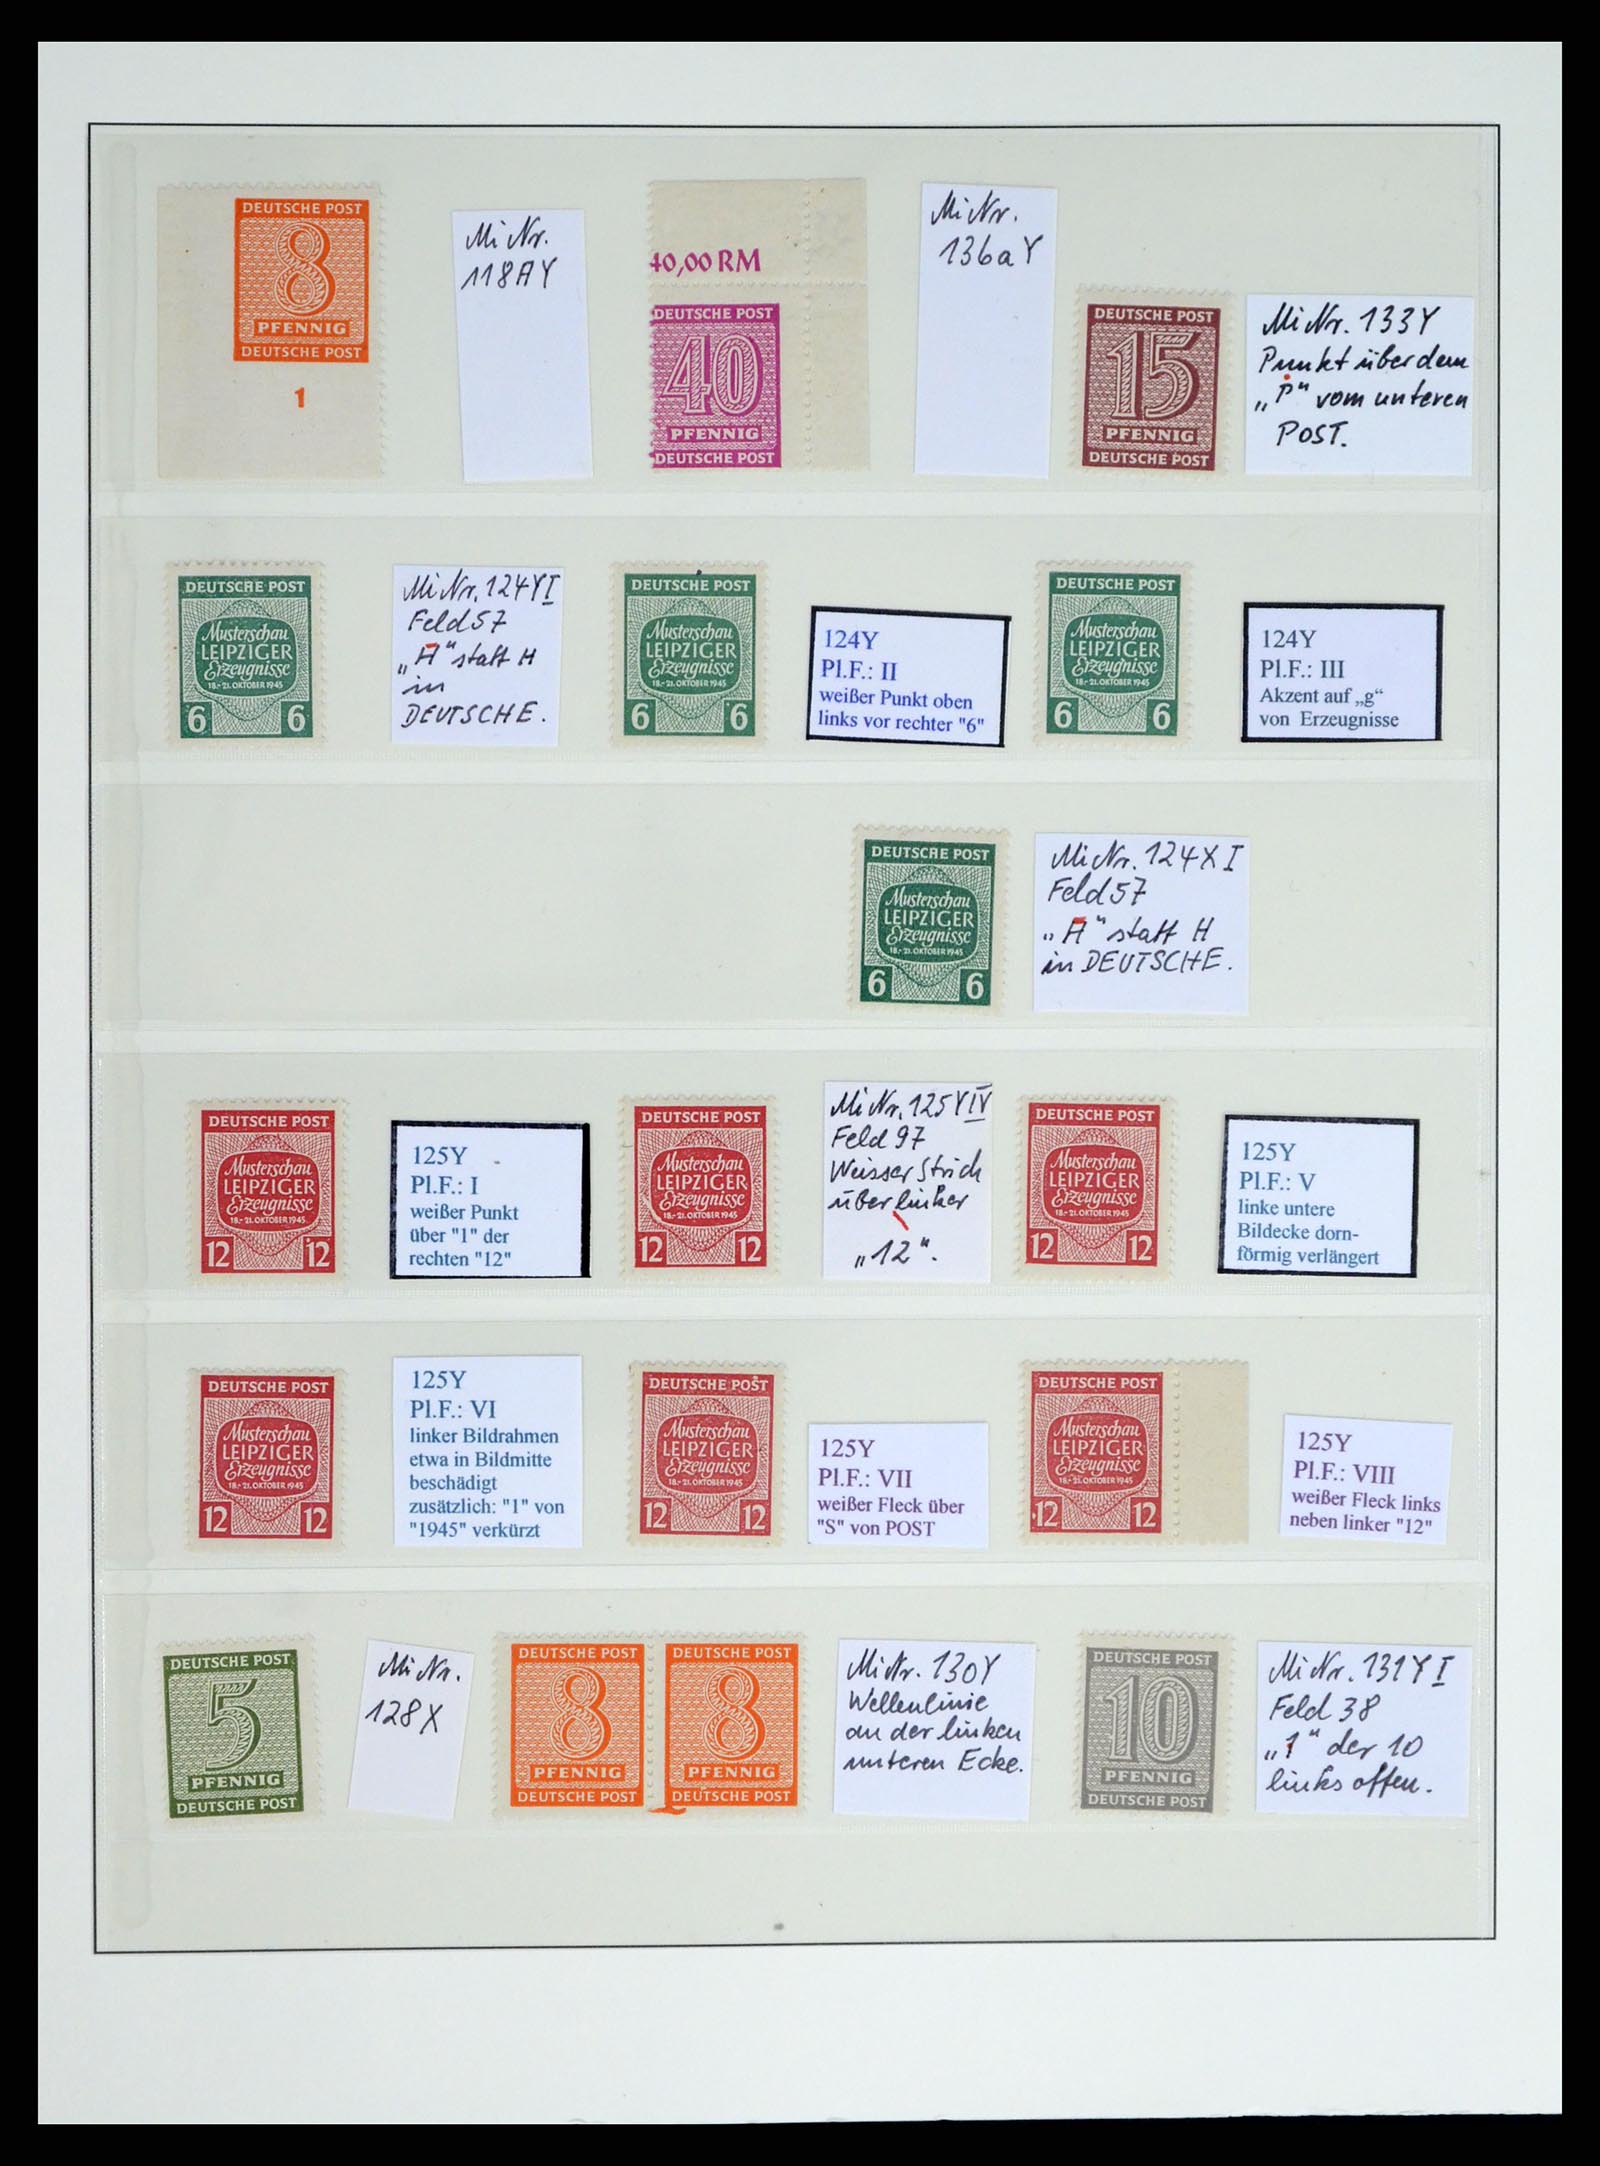 DEUTSCHE POST
8
PFENNIG
DEUTSCHE POST
1
MiNr.
118AY
40,00 RM
DEUTSCHE POST
40
PFENNIG
DEUTSCHE POST
MiNr.
136aY
DEUTSCHE POST
15
PFENNIG
DEUTSCHE POST
MiNr. 133Y
Punkt über dem
„P" vom unteren
POST.
DEUTSCHE POST
Musterschau
LEIPZIGER
Erzeugnisse
18.-21. OKTOBER 1945
6 6
MiNr. 124YI
Feld 57
„A" statt H
in
DEUTSCHE.
DEUTSCHE POST
Musterschau
LEIPZIGER
Erzeugnisse
18.-21. OKTOBER 1945
6 6
124Y
Pl.F.: II
weißer Punkt oben
links vor rechter "6"
DEUTSCHE POST
Musterschau
LEIPZIGER
Erzeugnisse
18.-21. OKTOBER 1945
6 6
124Y
Pl.F.: III
Akzent auf „g“
von Erzeugnisse
DEUTSCHE POST
Musterschau
LEIPZIGER
Erzeugnisse
18.-21. OKTOBER 1945
6 6
MiNr. 124XI
Feld 57
„A" statt H
in DEUTSCHE.
DEUTSCHE POST
Musterschau
LEIPZIGER
Erzeugnisse
18.-21. OKTOBER 1945
12 12
125Y
Pl.F.: I
weißer Punkt
über "1" der
rechten "12"
DEUTSCHE POST
Musterschau
LEIPZIGER
Erzeugnisse
18.-21. OKTOBER 1945
12 12
MiNr. 125YIV
Feld 97
Weisser Strich
über linker
„12".
DEUTSCHE POST
Musterschau
LEIPZIGER
Erzeugnisse
18.-21. OKTOBER 1945
12 12
125Y
Pl.F.: V
linke untere
Bildecke dorn-
förmig verlängert
DEUTSCHE POST
Musterschau
LEIPZIGER
Erzeugnisse
18.-21. OKTOBER 1945
12 12
125Y
Pl.F.: VI
linker Bildrahmen
etwa in Bildmitte
beschädigt
zusätzlich: "1" von
"1945" verkürzt
DEUTSCHE POST
Musterschau
LEIPZIGER
Erzeugnisse
18.-21. OKTOBER 1945
12 12
125Y
Pl.F.: VII
weißer Fleck über
"S" von POST
DEUTSCHE POST
Musterschau
LEIPZIGER
Erzeugnisse
18.-21. OKTOBER 1945
12 12
125Y
Pl.F.: VIII
weißer Fleck links
neben linker "12"
DEUTSCHE POST
5
PFENNIG
DEUTSCHE POST
MiNr.
128X
DEUTSCHE POST
8
PFENNIG
DEUTSCHE POST
DEUTSCHE POST
8
PFENNIG
DEUTSCHE POST
MiNr. 130Y
Wellenlinie
an der linken
unteren Ecke.
DEUTSCHE POST
10
PFENNIG
DEUTSCHE POST
MiNr. 131YI
Feld 38
„1" der 10
links offen.